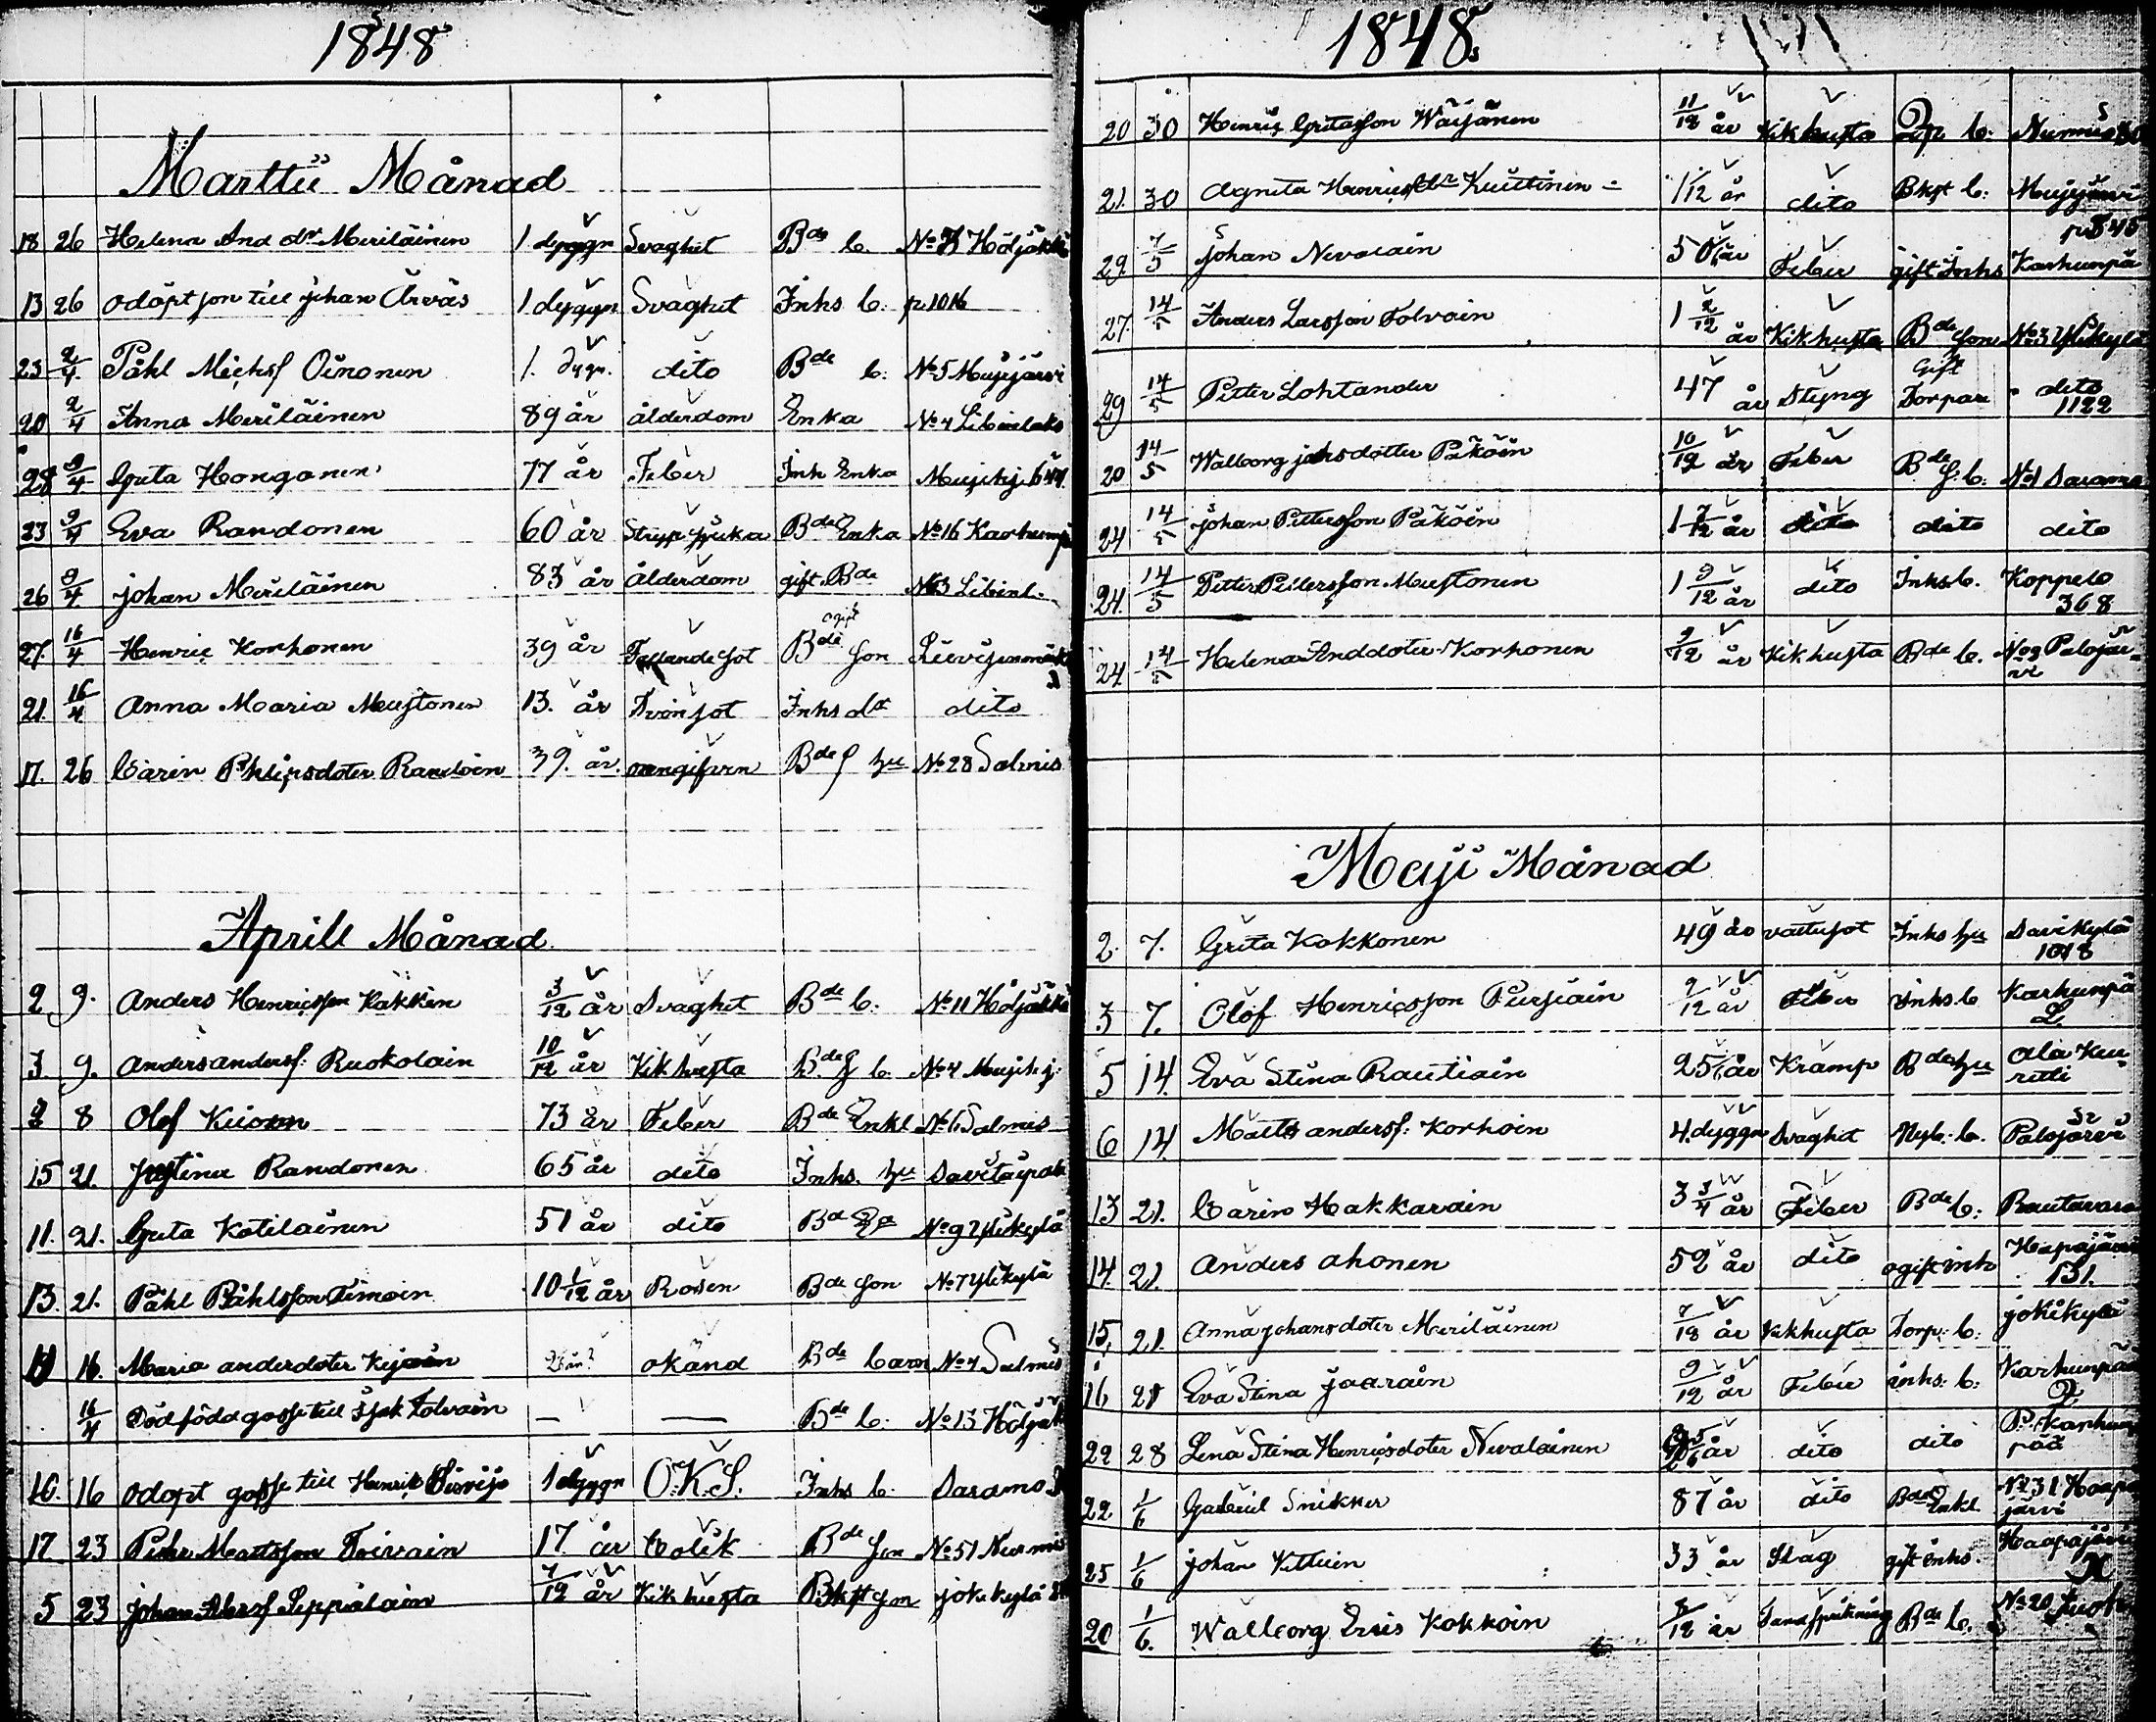 1848
Marttii Månad
18 26 Helena And dr Meriläinen 1 dyggn Svaghet Bde b. No 3 Höljäkkä
13 26 odöpt son till johan Ärväs 1 dyggn Svaghet Inhs b: p 1016
23 2/4 Påhl Michsf Oinonen 1. dygn. dito Bde b: No 5 Mujejärvi
20 2/4 Anna Meriläinen 89 år ålderdom Enka No 4 Libinlaks
28 9/4 Greta Honganen 77 år Feber Inh Enka
23 9/4 Eva Randonen 60 år Strypsjuka Bde Enka No 16 Karhunp
26 9/4 johan Meriläinen 83 år ålderdom gift Bde No 3 Libinl.
27. 16/4 Henric Korhonen 39 år Fallandesot ogift Bde son
21. 16/4 Anna Maria Mustonen 13. år Tvinsot Inhs dr dito
17. 26 Carin Philipsdoter Randoin 39. år oangifven Bde hu No 28 Salmis
Aprill Månad
2 9. Anders Henricsson Kakkin 3/12 år Svaghet Bde b: No 11 Höljäkkä
3. 9. Anders andersf: Ruokolain 10/12 år Kikhusta Bde b. No 4 Mujejj:
8 Olof Kuionen 73 år Feber Bde Enkl No 6 Salmis
15 21. Justina Randonen 65 år dito Inhs. hu Savitaipale
11. 21. Greta Kotilainen 51 år dito No 9 Ylikylä
13. 21. Påhl Påhlsson Timoin 10 1/12 år Rosen Bde son No 7 Ylikylä
16. Maria anderdoter okänd Bde barn No 4 Salmis
16/4 Dödfödd gosse till Isak Tolvain — — Bde b: No 13 Höljäk
10. 16 odöpt gosse till Henrik 1 dyggn O.K.S. Inhs b. Saramo
17 23 Petter Mattsson Toivain 17 år Colik Bde son No 51 Nurmis
5 23 johan Seppälain 7/12 år Kikhusta Bkft son jokikylä
1848
20 30 Henric Gretasson Wäijänen 11/12 år Kikhusta b: Nurmis
21. 30 Agneta Henricsdtr Kuittinen 1 1/12 år dito Bkft b: Mujejärvi
29. 7/5 johan Nevalain 50 år Feber gift Inhs Karhunpä
27. 14/5 Anders Larsson Tolvain 1 2/12 år Kikhusta Bde son No 3 Ylikylä
29 14/5 Petter Lohtander 47 år Styng Gift Torpare dito 1122
20 14/5 Walborg johsdotter Päköin 10/12 år Feber Bde b: No 1 Saramo
24 14/5 johan Pettersson Päköin 1 7/12 år dito dito dito
24. 14/5 Petter Pettersson Mustonen 1 9/12 år dito Inhs b. Koppelo 368
24. 14/5 Helena Anddoter Korhonen 9/12 år Kikhusta Bde b. No 2 Palojärvi
Maji Månad
2. 7. Greta Kokkonen 49 år vattusot Inhs hu Savikylä 1018
3 7. Olof Henricsson Pursiain 9/12 år Feber Inhs b Karhunpä
5 14. Eva Stina Rautiain 25 år Kramp Bde hu
6 14. Matts andersf: Korhoin 4 dyggn Svaghet Nyb. b. Palojärvi
13 21. Carin Hakkarain 3 3/4 år Feber Bde b: Rautavara
14. 21. anders ahonen 59 år dito ogift inh Hapajärvi 131.
15, 21. anna johansdoter Meriläinen 7/12 år Kikhusta Torp: b: jokikylä
16 21 Eva Stina jaarain 9/12 år Feber inhs: b: Karhunpää
22 28 Lena Stina Henricsdoter Nevalainen år dito dito Karhunpää
22 1/6 Gabriel Snikker 87 år dito Bde Enkl No 31 Haapajärvi
25 1/6 johan Kittuin 33 år Slag gift inhs. Haapajärvi
20 1/6. Walborg Erics Kokkoin 8/12 år Tandsprickning Bde b. No 20